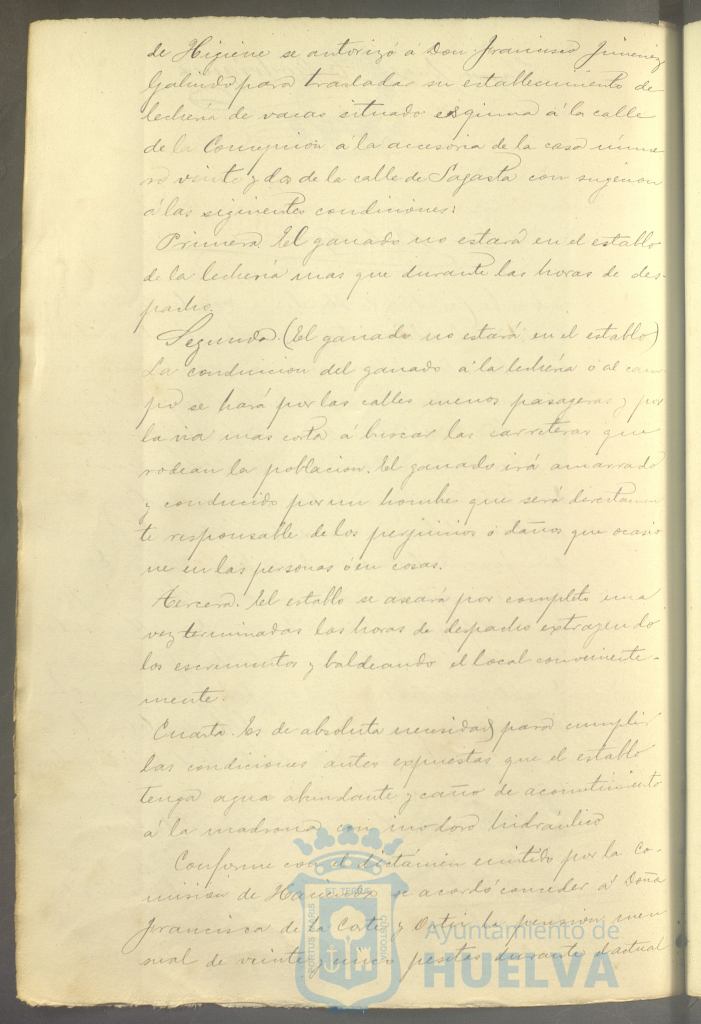 de Higiene se autorizó á Don Francisco Jimenez
Galindo para trasladar su establecimiento de
lecheria de vacas situado esquina á la calle
de la Concepcion á la accesoria de la casa núme
ro veinte y dos de la calle de Sagasta con sugecion
á las siguientes condiciones:
Primera. El ganado no estará en el establo
de la lechería mas que durante las horas de des-
pacho.
Segunda. (El ganado no estará en el establo)
La conduccion del ganado á la lechéria ó al cam
po se hará por las calles menos pasageras y por
la via mas corta á buscar las carreteras que
rodean la poblacion. El ganado irá amarrado
y conducido por un hombre que será directamen
te responsable de los perjuicios ó daños que ocasio
ne en las personas ó en cosas.
Tercera. El establo se aseará por completo una
vez terminadas las horas de despacho extrayendo
los escrementos y baldeando el local conveniente-
mente.
Cuarta. Es de absoluta necesidad para cumplir
las condiciones antes expuestas que el establo
tenga agua abundante y caño de acometimiento
á la madrona con inodoro hidráulico
Conforme con el dictámen emitido por la Co-
mision de Hacienda se acordó conceder á Doña
Francisca de la Corte y Ortiz la pension men
sual de veinte y cinco pesetas durante el actual
Ayuntamiento de
HUELVA
PORTUS MARIS
ET TERRE
CUSTODIA